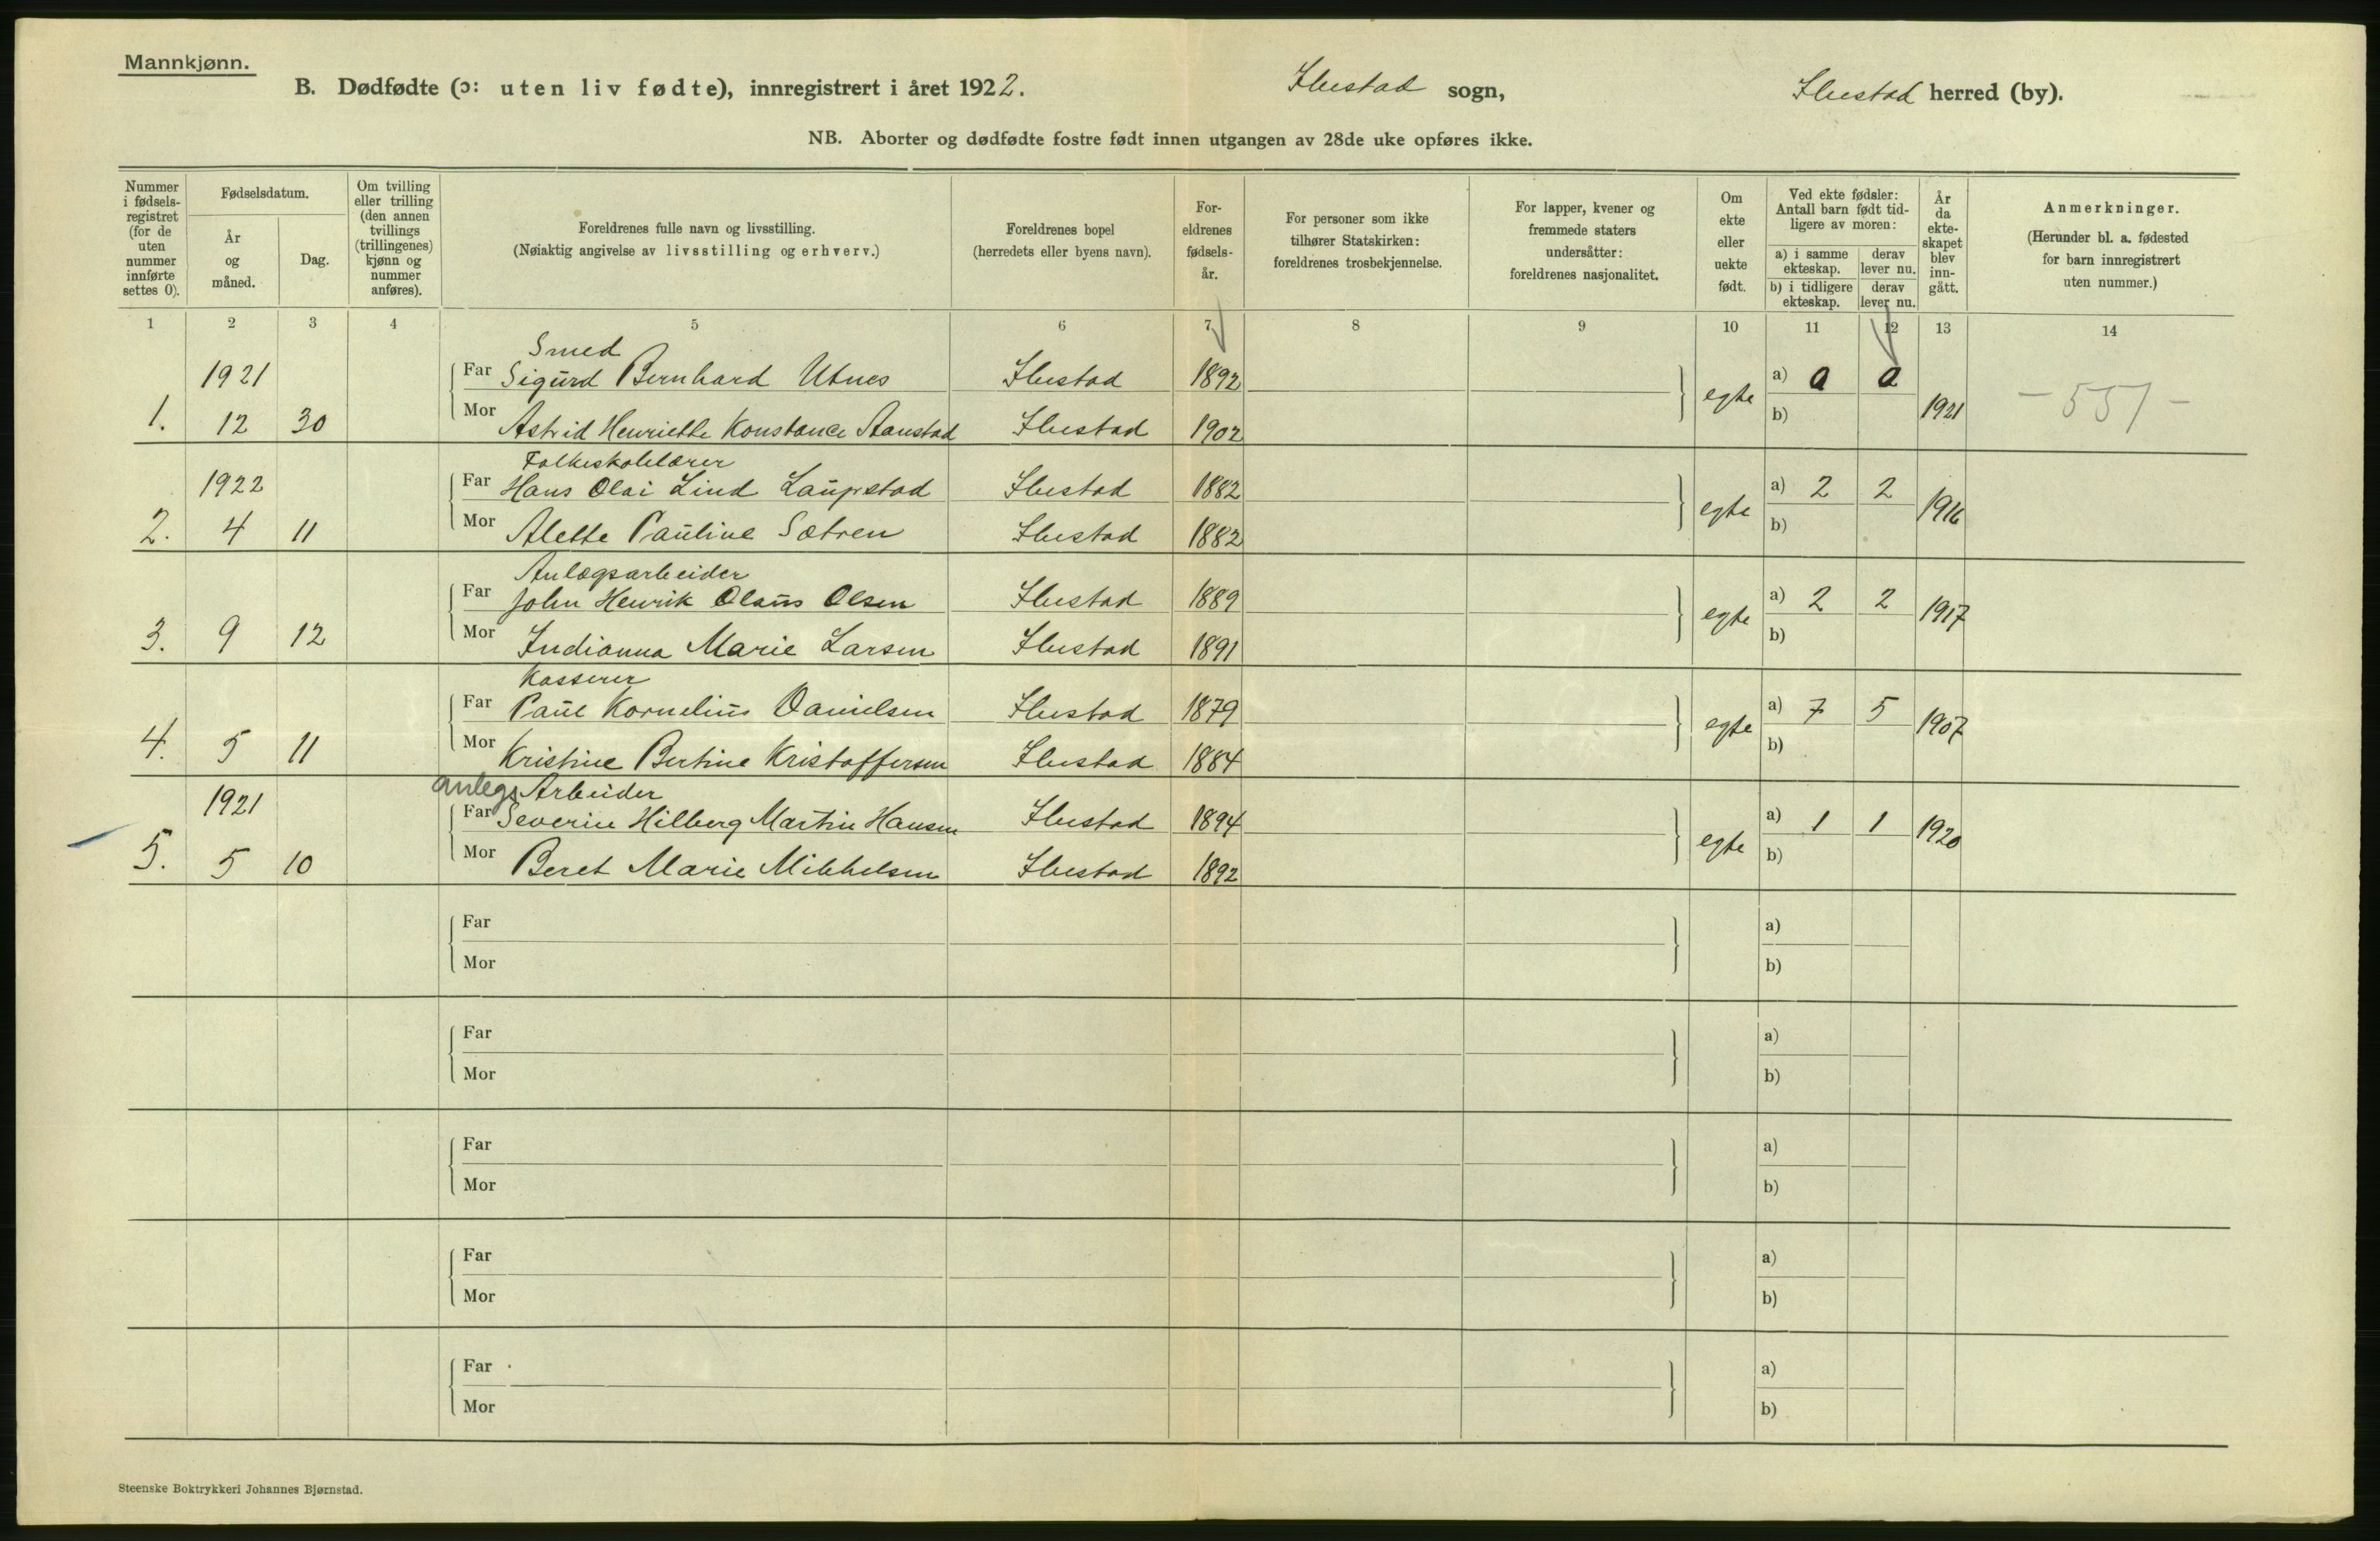 Mannkjønn.
B. Dødfødte (ɔ: uten liv fødte), innregistrert i året 1922. Ibestad sogn, Ibestad herred (by).
NB. Aborter og dødfødte fostre født innen utgangen av 28de uke opføres ikke.
Nummer i fødselsregistret (for de uten nummer innførte settes 0).
Fødselsdatum.
År og måned.
Dag.
Om tvilling eller trilling (den annen tvillings (trillingenes) kjønn og nummer anføres).
Foreldrenes fulle navn og livsstilling.
(Nøiaktig angivelse av livsstilling og erhverv.)
Foreldrenes bopel
(herredets eller byens navn).
Foreldrenes fødselsår.
For personer som ikke tilhører Statskirken: foreldrenes trosbekjennelse.
For lapper, kvener og fremmede staters undersåtter: foreldrenes nasjonalitet.
Om ekte eller uekte født.
Ved ekte fødsler: Antall barn født tidligere av moren:
a) i samme ekteskap. derav lever nu.
b) i tidligere ekteskap. derav lever nu.
År da ekteskapet blev inngått.
Anmerkninger.
(Herunder bl. a. fødested for barn innregistrert uten nummer.)
1 2 3 4 5 6 7 8 9 10 11 12 13 14
Smed
1921 Far Sigurd Bernhard Utnes Ibestad 1892 egte a) 0 0 1921 - 551 -
1. 12 30 Mor Astrid Henriette Konstance Aanstad Ibestad 1902 b)
Folkeskolelærer
1922 Far Hans Olai Lind Laupstad Ibestad 1882 egte a) 2 2 1916
2. 4 11 Mor Alette Pauline Sætren Ibestad 1882 b)
Anlægsarbeider
Far John Henrik Olaus Olsen Ibestad 1889 egte a) 2 2 1917
3. 9 12 Mor Indianna Marie Larsen Ibestad 1891 b)
Kasserer
Far Paul Kornelius Danielsen Ibestad 1879 egte a) 7 5 1907
4. 5 11 Mor Kristine Bertine Kristoffersen Ibestad 1884 b)
anlegs Arbeider
1921 Far Severin Hilberg Martin Hansen Ibestad 1894 egte a) 1 1 1920
5. 5 10 Mor Beret Marie Mikkelsen Ibestad 1892 b)
Far a)
Mor b)
Far a)
Mor b)
Far a)
Mor b)
Far a)
Mor b)
Far a)
Mor b)
Steenske Boktrykkeri Johannes Bjørnstad.